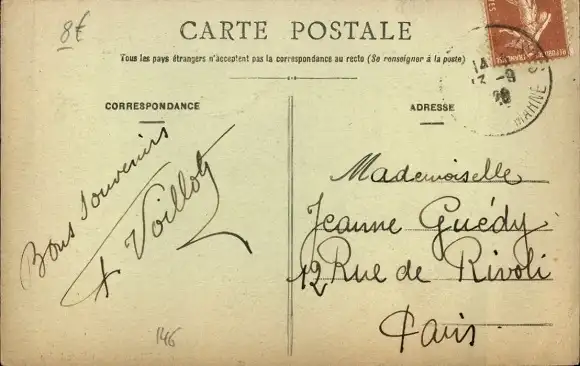 8€
CARTE POSTALE
Tous les pays étrangers n'acceptent pas la correspondance au recto (Se renseigner à la poste)
CORRESPONDANCE
Bons souvenirs
Voillot
146
ADRESSE
Mademoiselle
Jeanne Guédy
12 Rue de Rivoli
Paris
14
13 -9
MARNE